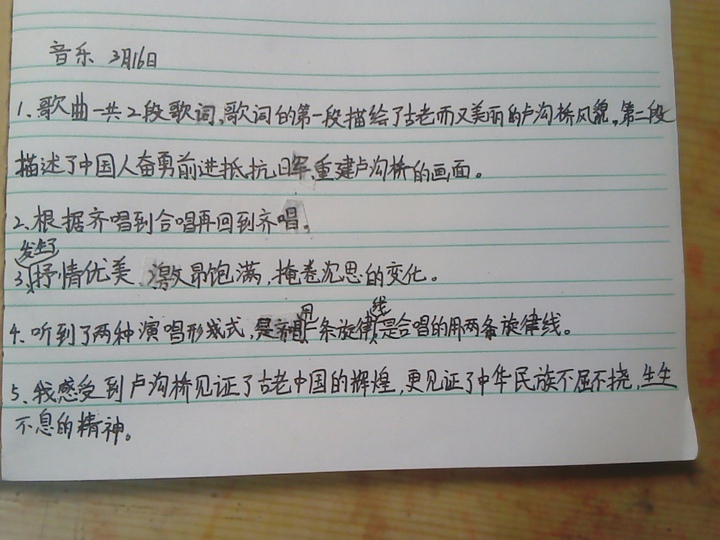 音乐 3月16日
1、歌曲一共2段歌词,歌词的第一段描绘了古老而又美丽的卢沟桥风貌。第二段
描述了中国人奋勇前进抵抗日军,重建卢沟桥的画面。
2、根据齐唱到合唱再回到齐唱。
发生了
3、抒情优美、激昂饱满,掩卷沉思的变化。
用 线
4、听到了两种演唱形式式,是齐唱一条旋律是合唱的用两条旋律线。
5、我感受到卢沟桥见证了古老中国的辉煌,更见证了中华民族不屈不挠,生生
不息的精神。